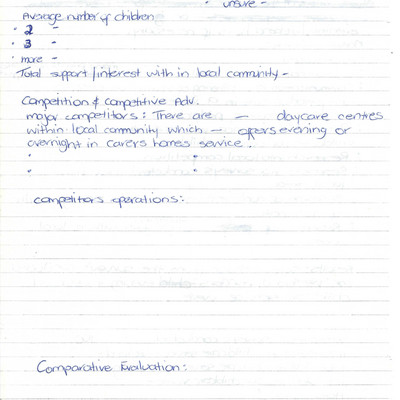 • unsure -
Average number of children
• 2 -
• 3 -
• more -
Total support/interest with in local community -
Competition & Competitive Adv.
major competitors: There are — daycare centres
within local community which — offers evening or
overnight in carers homes service.
• •
• •
competitors operations:
Comparative Evaluation: